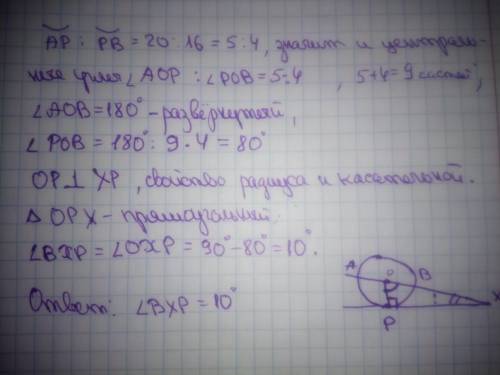 AP : PB = 20 : 16 = 5 : 4, значит и централь-
ные углы ∠AOP : ∠POB = 5:4 , 5+4=9 частей,
∠AOB = 180° - развёрнутый,
∠POB = 180° : 9 · 4 = 80°
OP ⊥ XP, свойство радиуса и касательной.
△ OPX - прямоугольный.
∠BXP = ∠OXP = 90° - 80° = 10°.
Ответ: ∠BXP = 10°
A
O
B
X
P